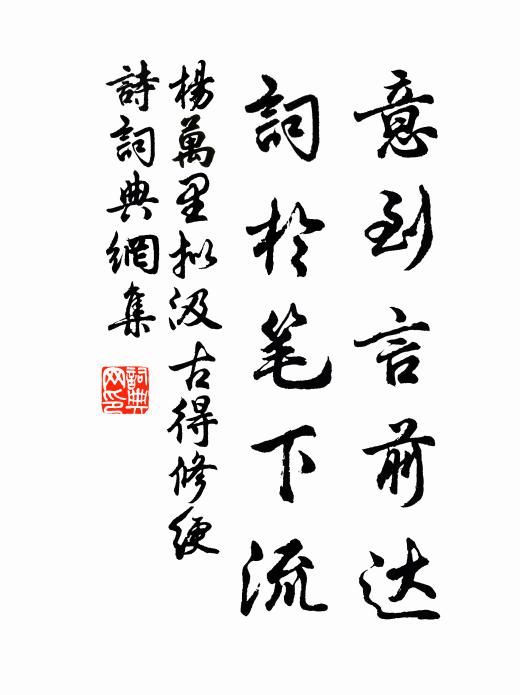 意到言前达
詞於笔下流
楊萬里拟汲古得修绠
詩詞典網集
詞典网印